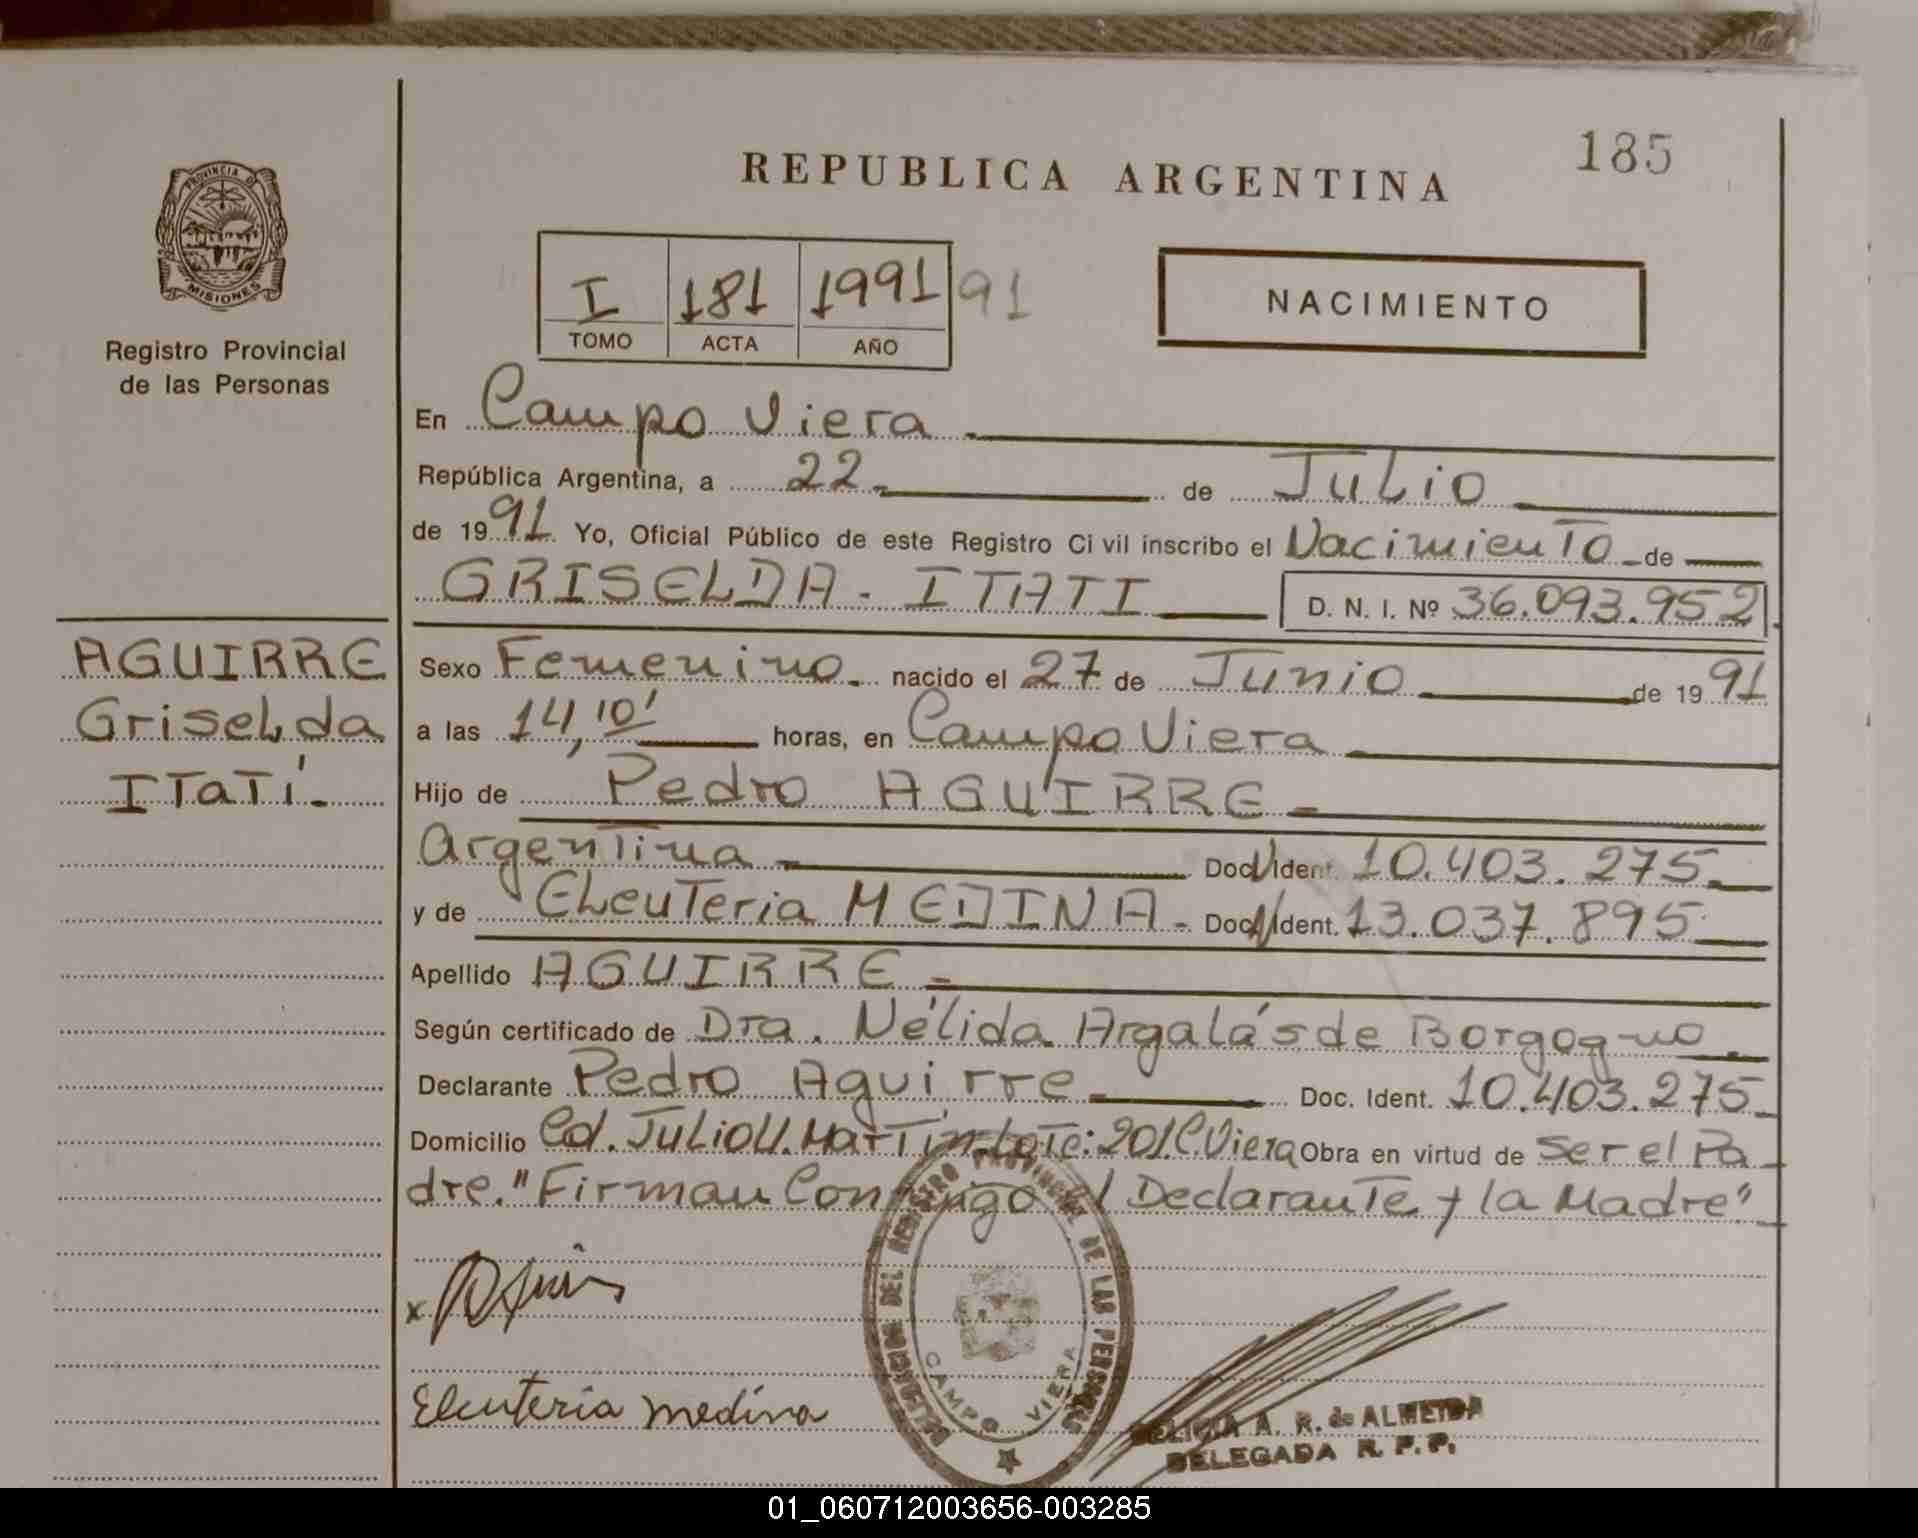 185
REPUBLICA ARGENTINA
PROVINCIA DE
MISIONES
Registro Provincial
de las Personas
I 181 1991 91
TOMO ACTA AÑO
NACIMIENTO
En Campo Viera
República Argentina, a 22 de Julio
de 1991 Yo, Oficial Público de este Registro Civil inscribo el Nacimiento de
GRISELDA - ITATI D. N. I. Nº 36.093.952
AGUIRRE
Griselda
ITATÍ.
Sexo Femenino nacido el 27 de Junio de 1991
a las 14,10' horas, en Campo Viera
Hijo de Pedro AGUIRRE
Argentina Doc. Ident. 10.403.275
y de Eleuteria MEDINA Doc. Ident. 13.037.895
Apellido AGUIRRE
Según certificado de Dra. Nélida Argalás de Borgogno
Declarante Pedro Aguirre Doc. Ident. 10.403.275
Domicilio Cd. Julio U. Martín Lote: 201 C. Viera Obra en virtud de ser el Pa
dre. "Firman Conmigo el Declarante y la Madre"
DELEGACION DEL REGISTRO PROVINCIAL DE LAS PERSONAS
CAMPO VIERA
x
Eleuteria medina
A. R. de ALMEIDA
DELEGADA R. P. P.
01_060712003656-003285